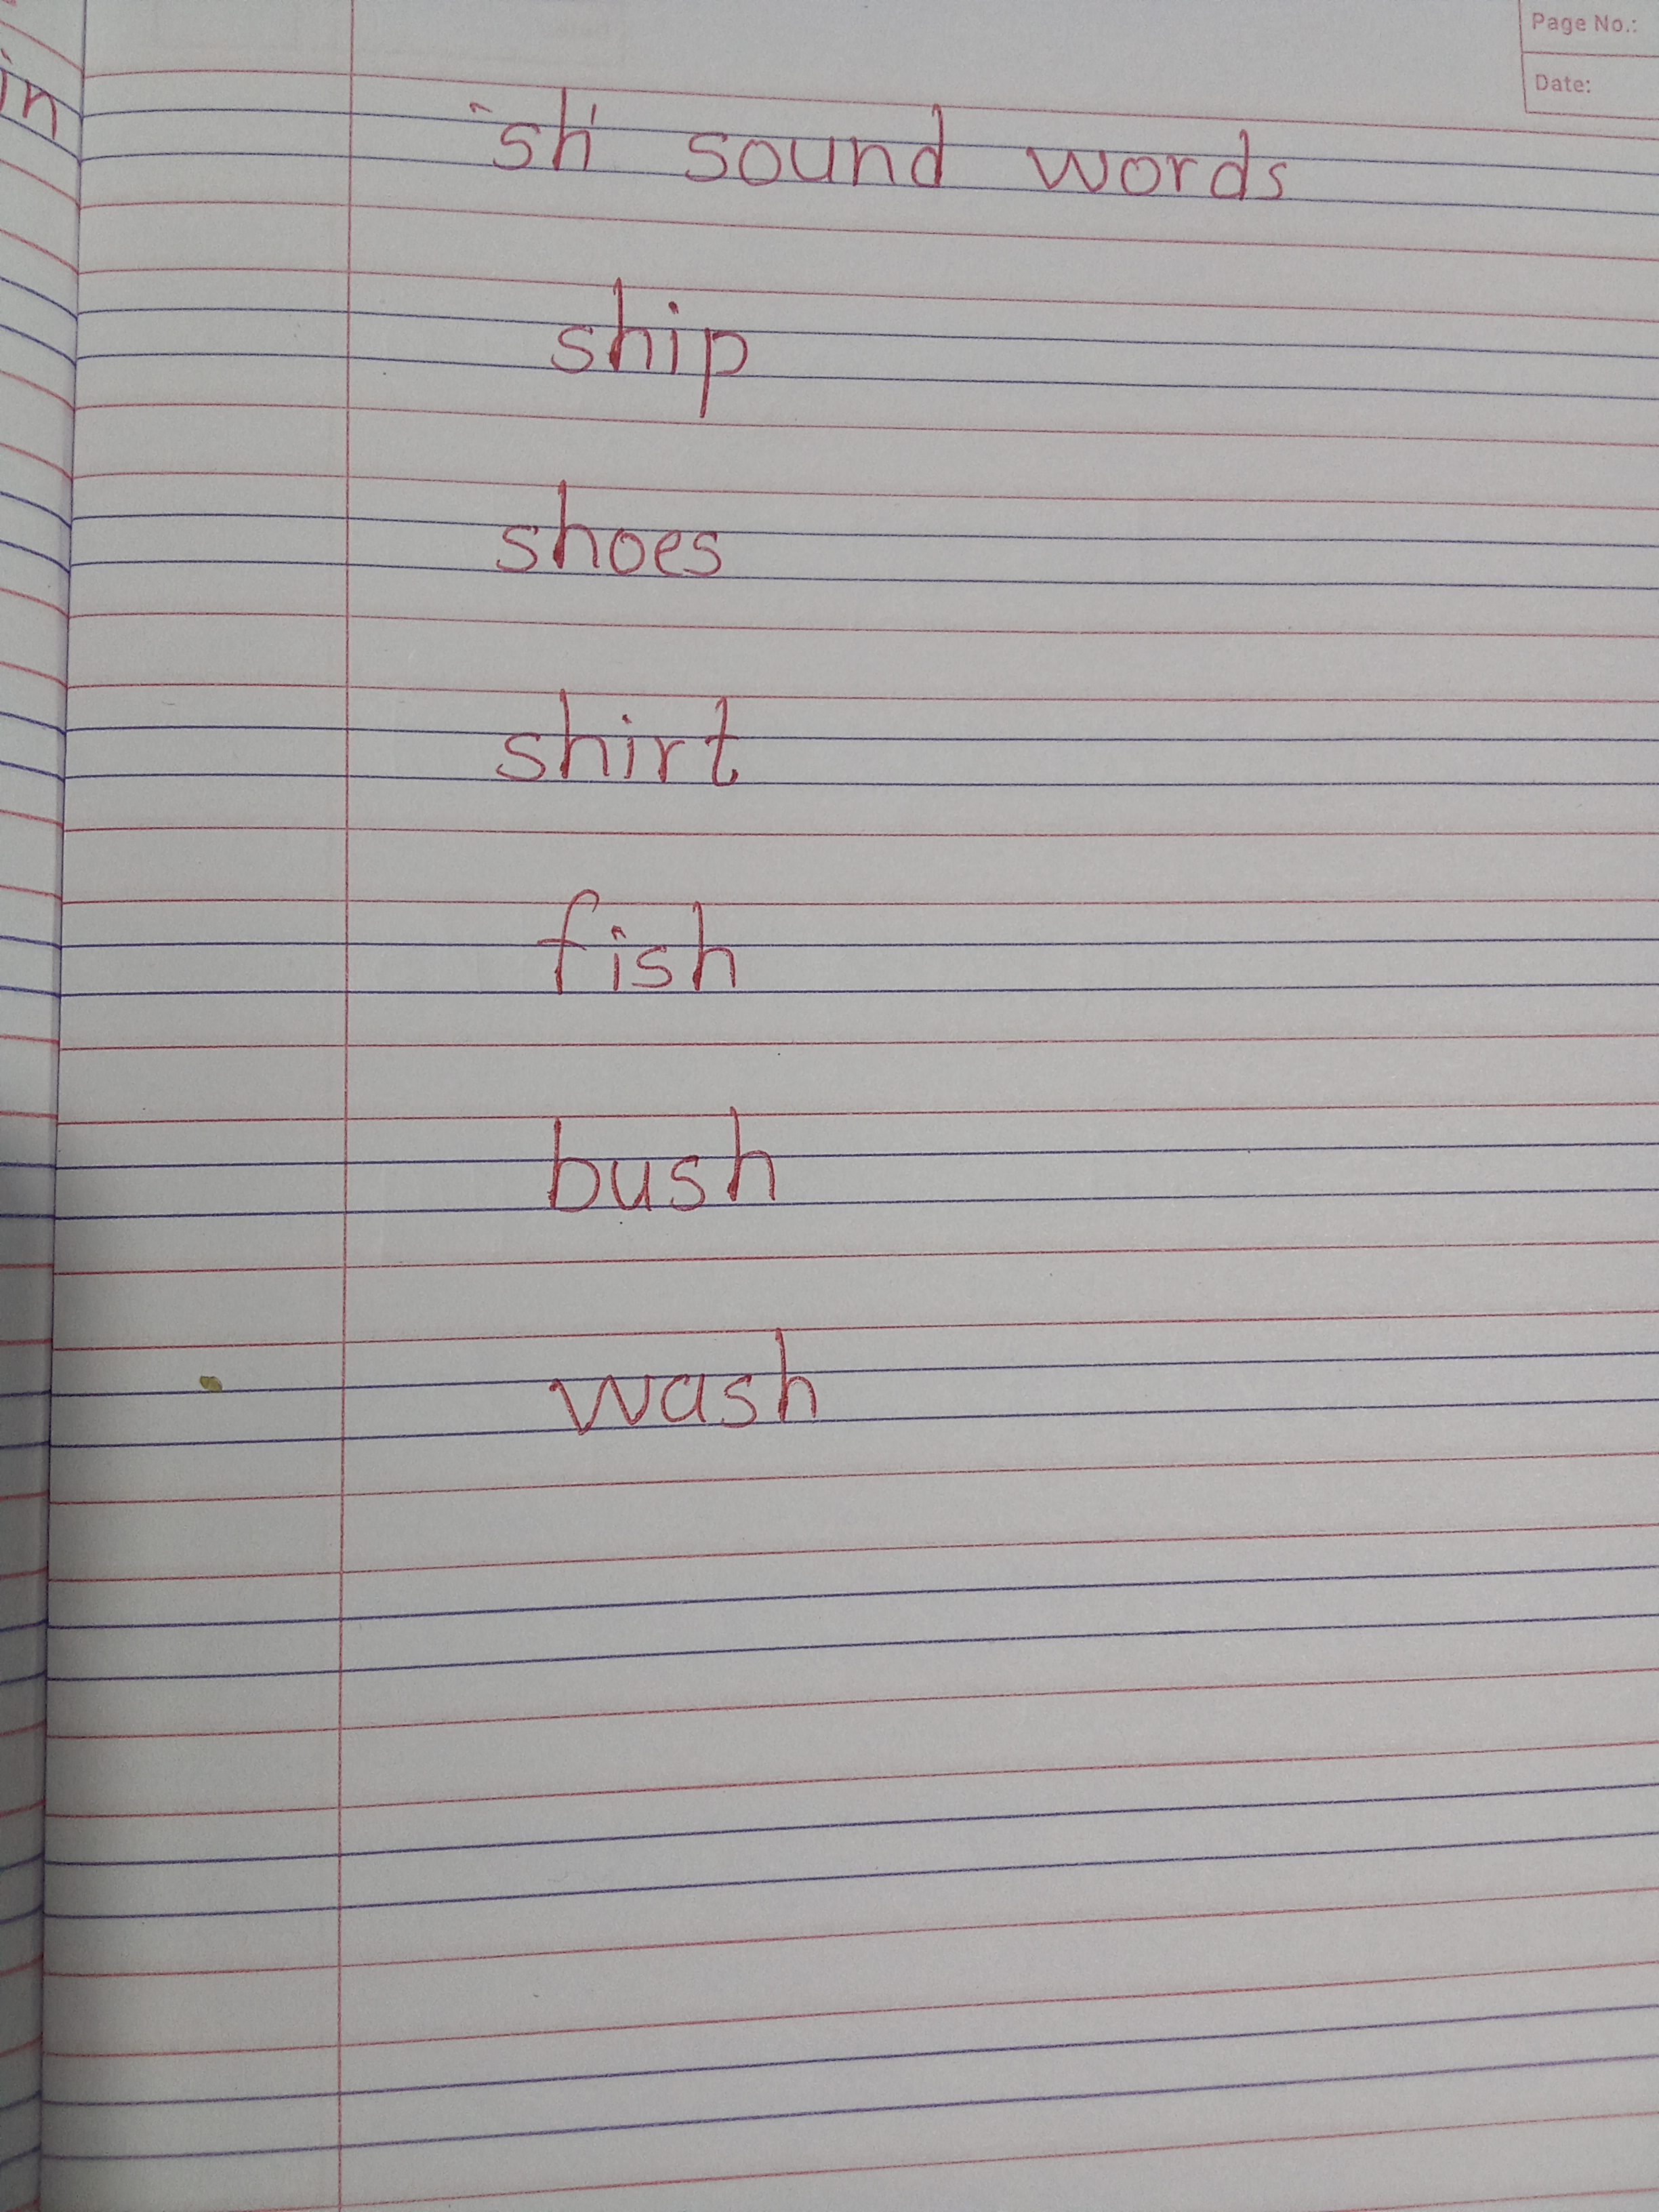 Page No.:
Date:
in
'sh' sound words
ship
shoes
shirt
fish
bush
wash